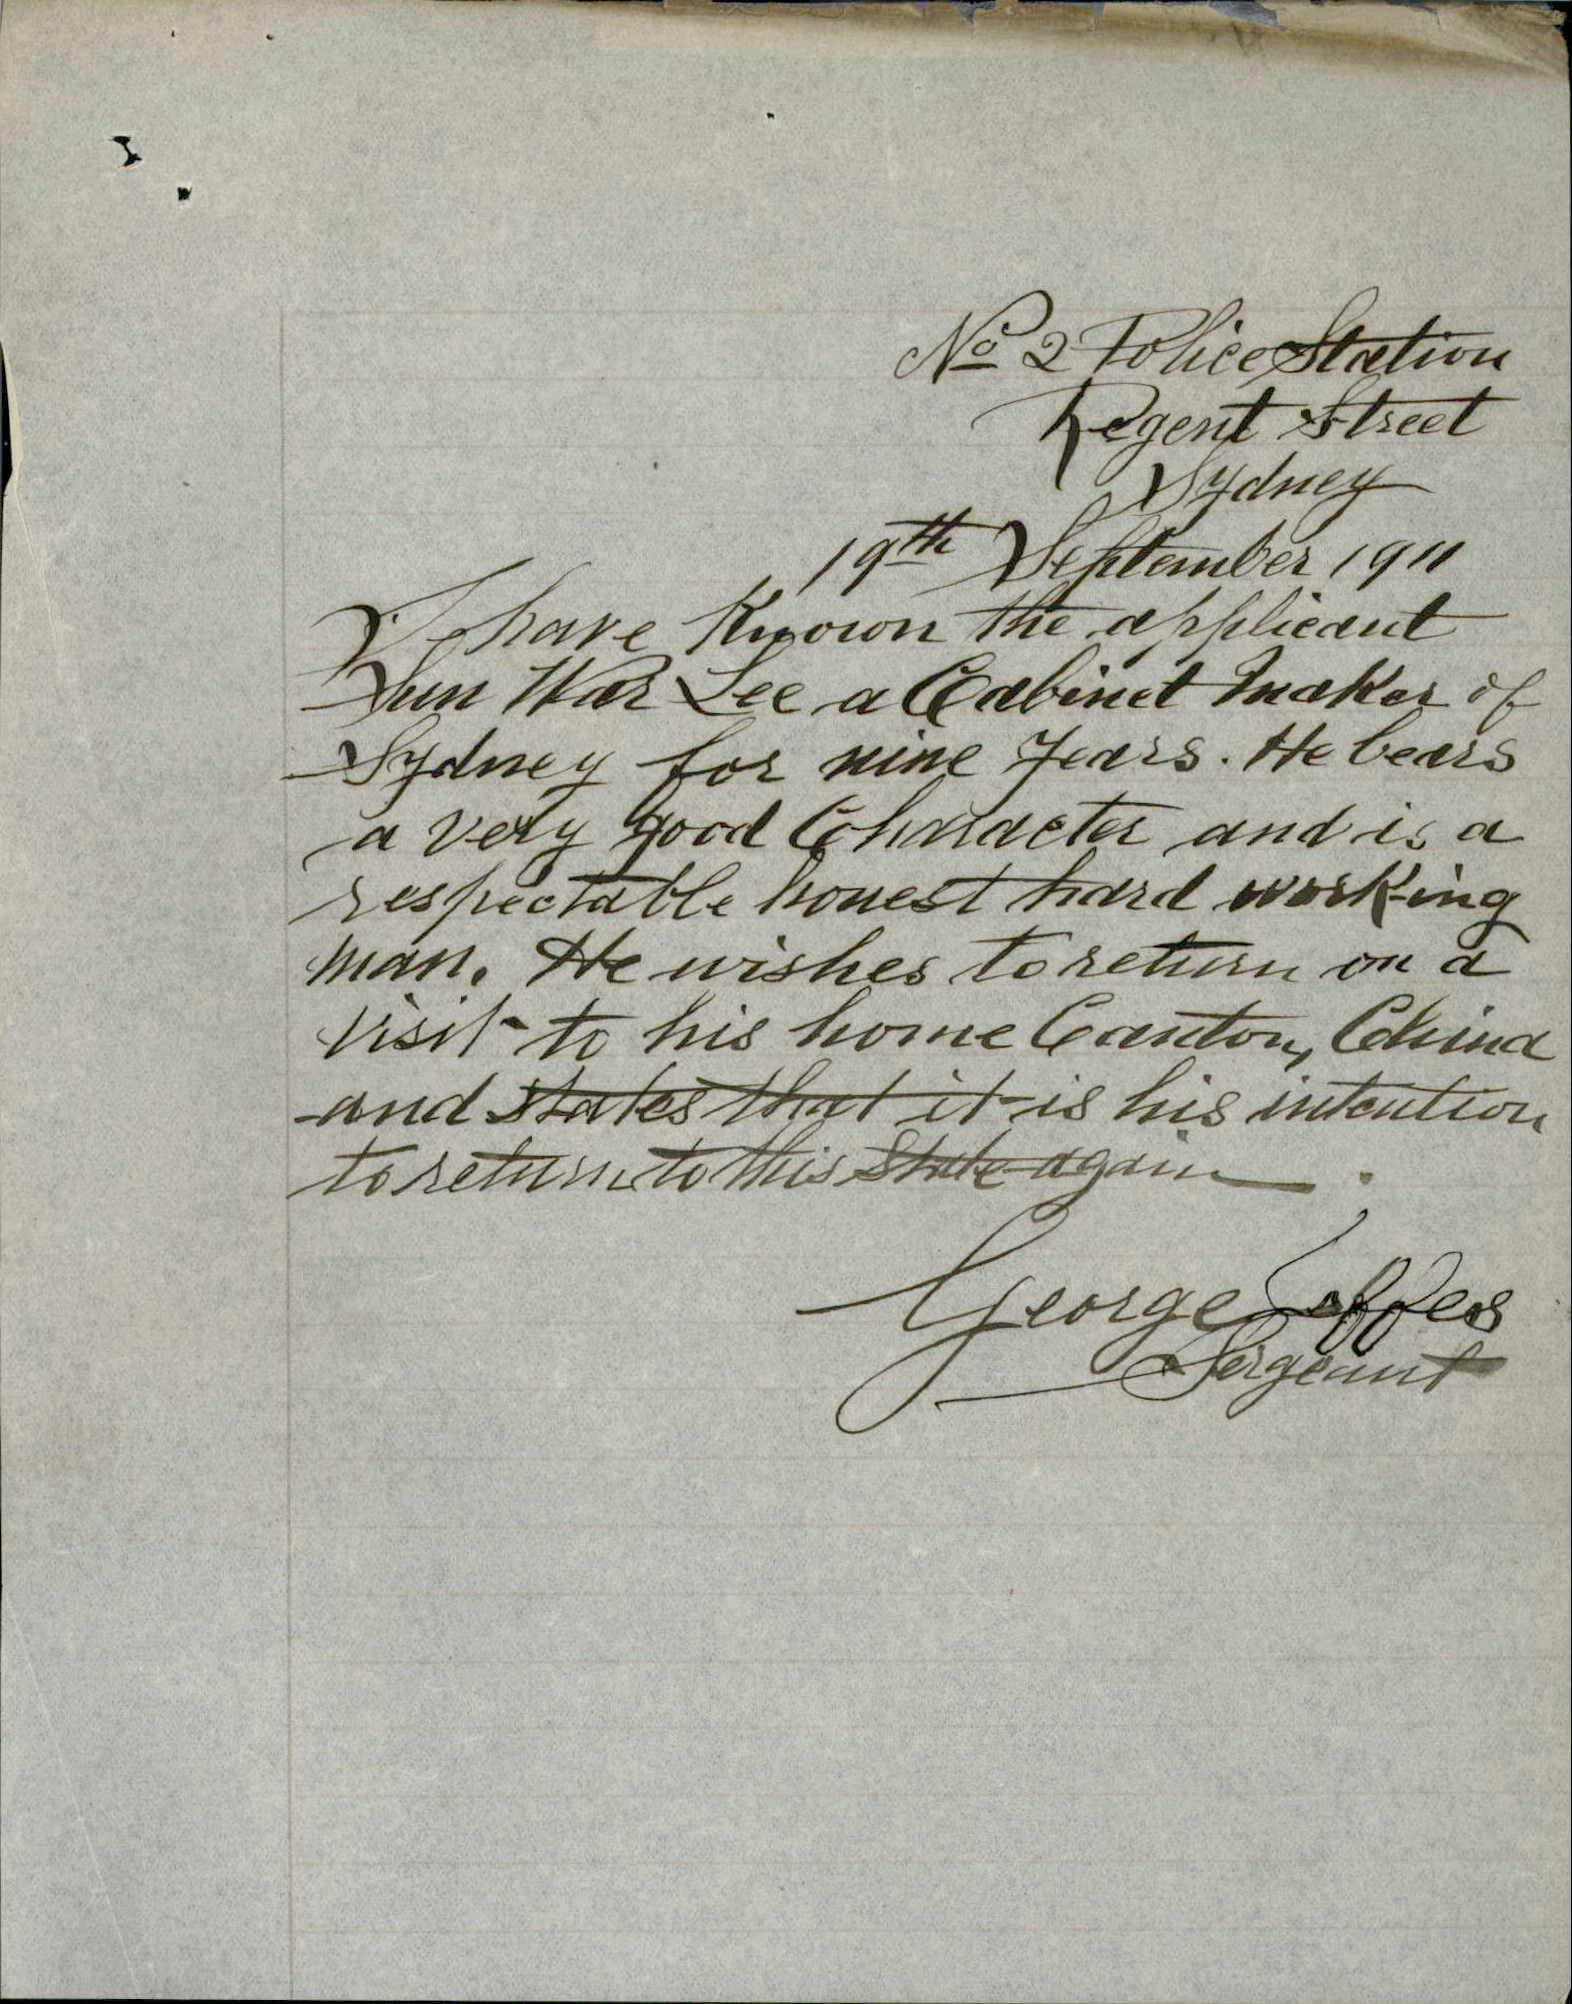 No 2 Police Station
Regent Street
Sydney
19th September 1911
I have Known the applicant
Sun War Lee a Cabinet Maker of
Sydney for nine Years. He bears
a very good Character and is a
respectable honest hard working
man. He wishes to return on a
visit to his home Canton, China
and states that it is his intention
to return to this State again.
George Jeffes
Sergeant